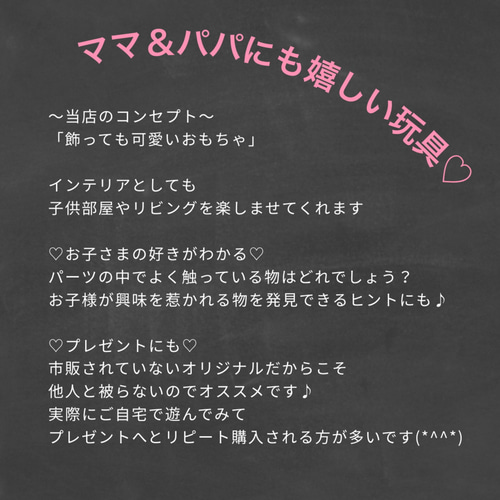 ママ＆パパにも嬉しい玩具♡
～当店のコンセプト～
「飾っても可愛いおもちゃ」
インテリアとしても
子供部屋やリビングを楽しませてくれます
♡お子さまの好きがわかる♡
パーツの中でよく触っている物はどれでしょう？
お子様が興味を惹かれる物を発見できるヒントにも♪
♡プレゼントにも♡
市販されていないオリジナルだからこそ
他人と被らないのでオススメです♪
実際にご自宅で遊んでみて
プレゼントへとリピート購入される方が多いです(*^^*)